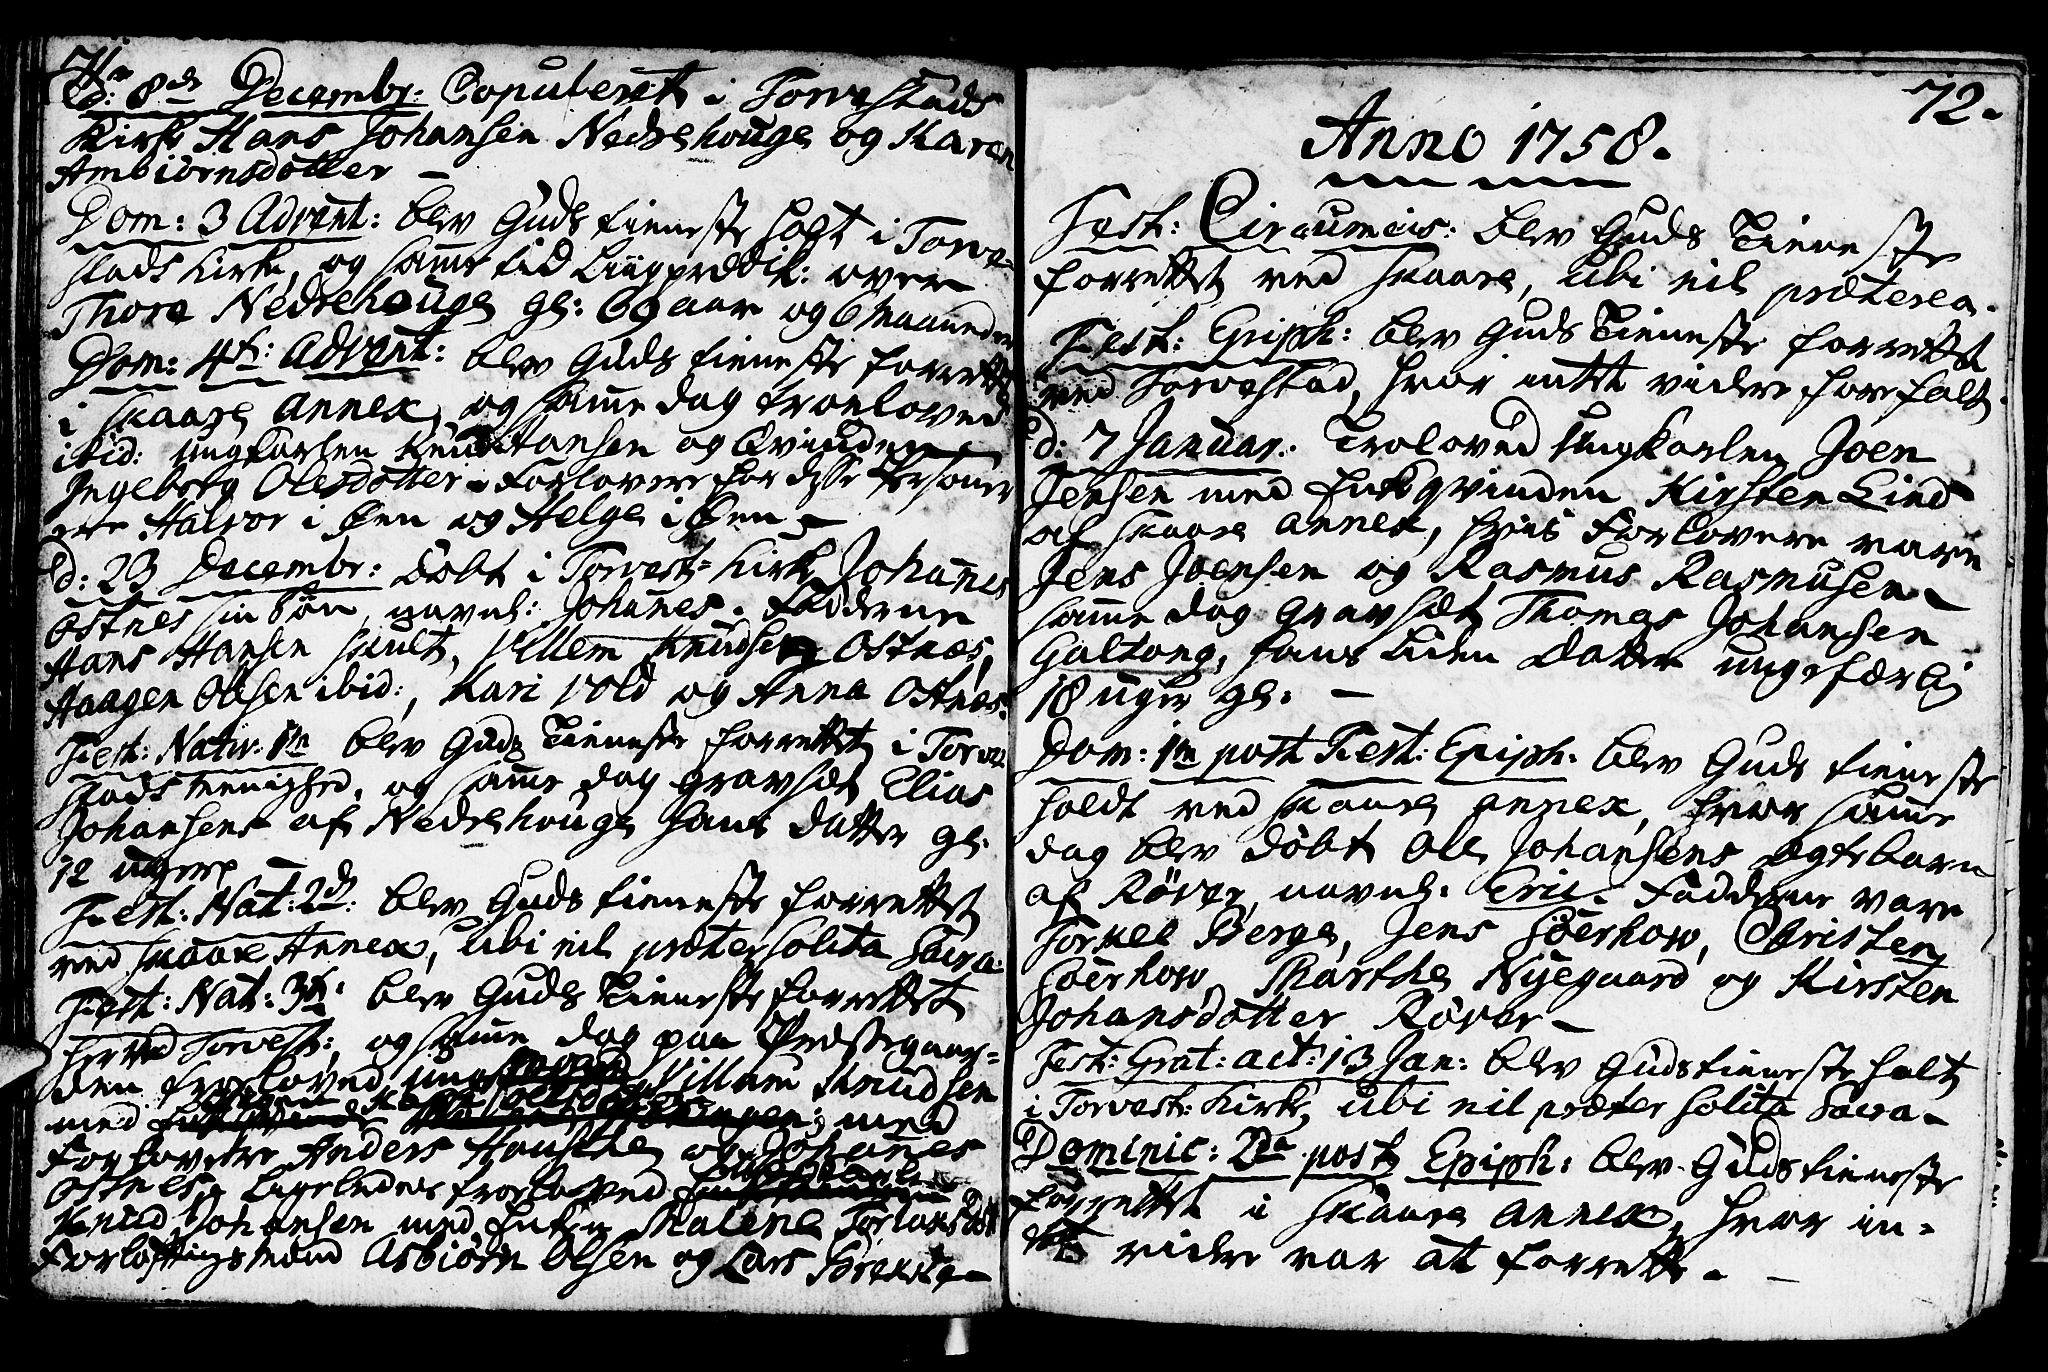 71.
d: 8de Decembr: Copuleret i Torvestads
Kirke Hans Johansen Nedrehouge og Karen
Ambiörnsdotter —
Dom: 3 Advent: blev Guds tieneste holt i Torve-
stads Kirke, og samme tid Liigprædik: over
Thore Nedrehouge gl: 69 aar og 6 Maaneder
Dom: 4t: Advent: blev Guds tieneste forrettet
i Skaare Annex, og samme dag troeloved
ibid: ungkarlen Knud Hansen og Qvinden
Ingeborg Olesdotter. Forlovere for disse Personer
ere Halvor i Øen og Helge i Øen —
d: 23 Decembr: döbt i Torvest: Kirke Johannes
Ostnes sin Søn, navnl: Johanes. Fadderne
Hans Hansen Skult, Villem Knudsen Ostnes,
Haagen Olsen ibid:, Kari Vold og Anna Ostnes.
Fest: Nativ: 1m blev Guds Tieneste forrettet i Torve-
stads Menighed, og samme dag gravsat Elias
Johansens af Nedrehouge hans datter gl:
12 uger —
Fest: Nat: 2d: blev Guds tieneste forrettet
ved Skaare Annex, ubi nil præter solita Sacra.
Fest: Nat: 3t: blev Guds Tieneste forrettet
her ved Torvest:, og samme dag paa Præstegaar-
den troeloved Villum Knudsen
med med
Forlovere Anders Hauske og Johanes
Ostnes, Ligeledes troeloved
Knud Johansen med Enken Malene Torlaksdott
Forløftningsmænd Asbiörn Olsen og Lars Brekke —
72.
Anno 1758.
Fest: Circumcis: blev Guds Tieneste
forrettet ved Skaare, ubi nil præterea.
Fest: Epiph: blev Guds Tieneste forrettet
ved Torvestad, hvor intet videre forefalt.
d: 7 Januar: Troloved Ungkarlen Joen
Jensen med Enkeqvinden Kirsten Lind
af Skaare Annex, hvis Forlovere vare
Jens Joensen og Rasmus Rasmusen —
samme dag gravsat Thomas Johansen
Galtong, hans liden Datter ungefærlig
18 uger gl. —
Dom: 1m post Fest: Epiph: blev Guds tieneste
holdt ved Skaare Annex, hvor samme
dag blev döbt Ole Johansens ægtebarn
af Röver, navnl: Eric. Fadderne vare
Torkel Berge, Jens Söerhow, Christen
Söerhow, Marthe Nyegaard og Kirsten
Johansdotter Röver —
Fest: Grat: act: 13 Jan: blev Guds tieneste holt
i Torvest: Kirke, ubi nil præter solita Sacra —
Dominic: 2da post Epiph: blev Guds tieneste
forrettet i Skaare Annex, hvor in-
tet videre var at forrette. —